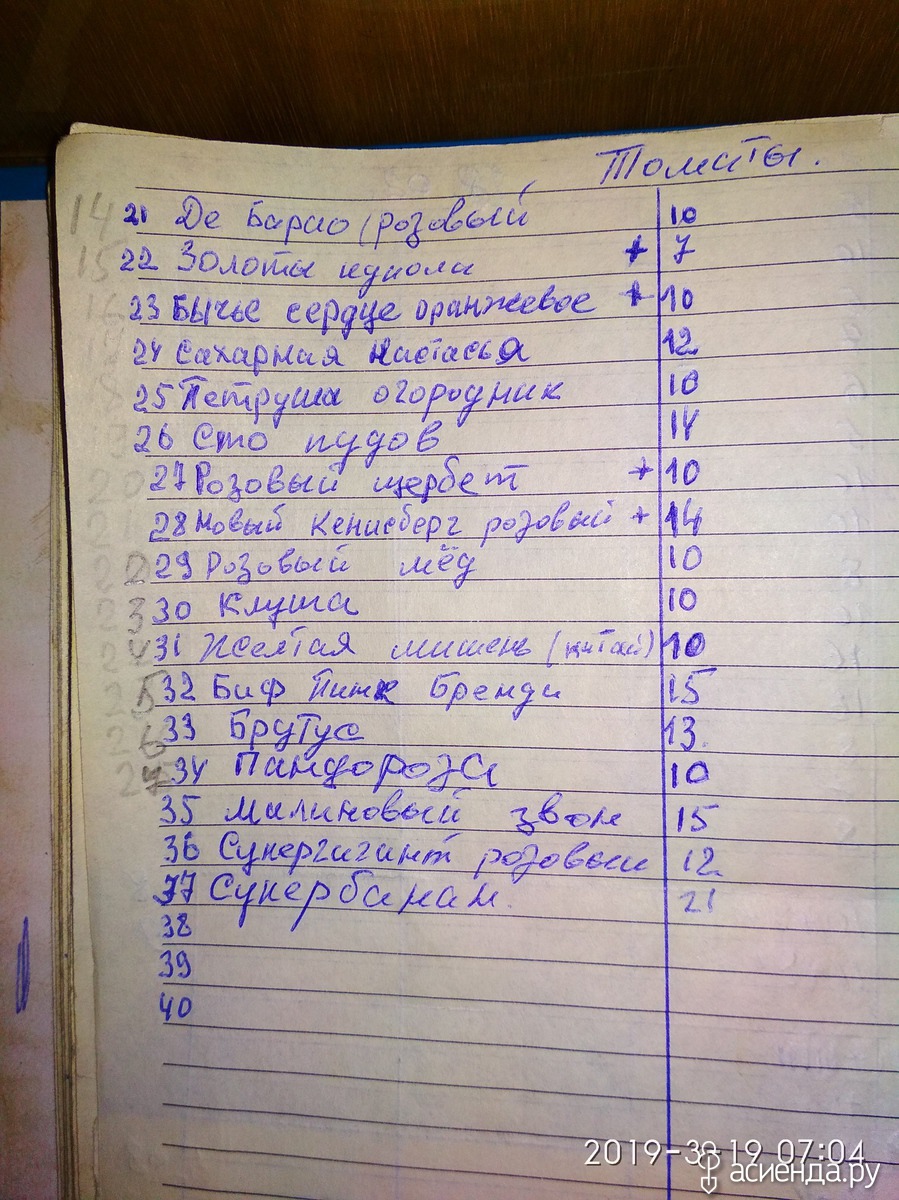 Томаты.
21 Де Барао (розовый 10
22 Золоты купола + 7
23 Бычье сердце оранжевое + 10
24 Сахарная Настасья 12
25 Петруша огородник 10
26 Сто пудов 14
27 Розовый щербет + 10
28 Новый Кенисберг розовый + 14
29 Розовый мёд 10
30 Клуша 10
31 Желтая мишень (китай) 10
32 Биф Пинк Бренди 15
33 Брутус 13.
34 Пандороза 10
35 Малиновый звон 15
36 Супергигант розовый 12
37 Супербанан. 21
38
39
40
2019-3-19 07:04
асиенда.ру